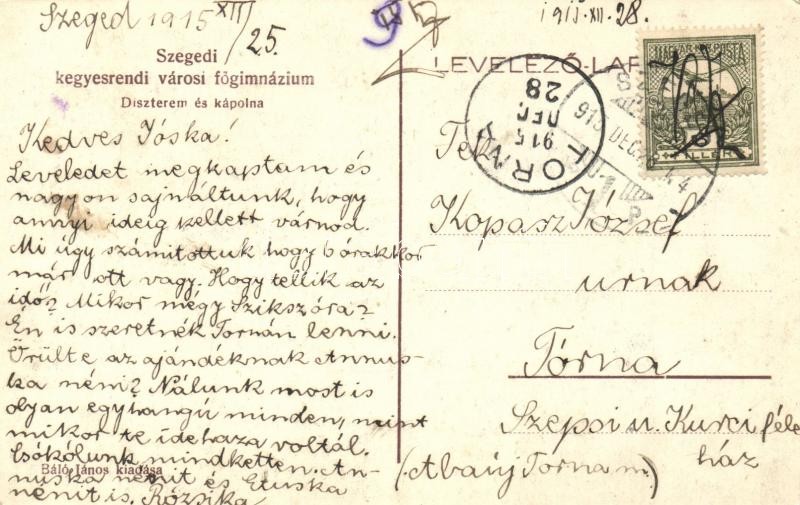 Szeged 1915 XII/25.
1915.XII.28.
Szegedi
kegyesrendi városi főgimnázium
Díszterem és kápolna
LEVELEZŐ-LAP
MAGYAR KIR. POSTA
FILLÉR
TORNA
915
DEC.
28
915 DEC.
Kedves Jóska!
Leveledet megkaptam és
nagyon sajnáltunk, hogy
annyi ideig kellett várnod.
Mi úgy számítottuk hogy 6 órakkor
már ott vagy. Hogy tellik az
idő? Mikor mégy Szikszóra?
Én is szeretnék Tornán lenni.
Örülte az ajándéknak Annus-
ka néni? Nálunk most is
olyan egyhangú minden, mint
mikor te idehaza voltál.
Csókolunk mindketten. An-
nuska nénit és Etuska
nénit is. Rózsika
Báló János kiadása
Tek.
Kopasz József
urnak
Torna
Szepsi u. Kurci féle
ház
(Abaúj Torna m.)